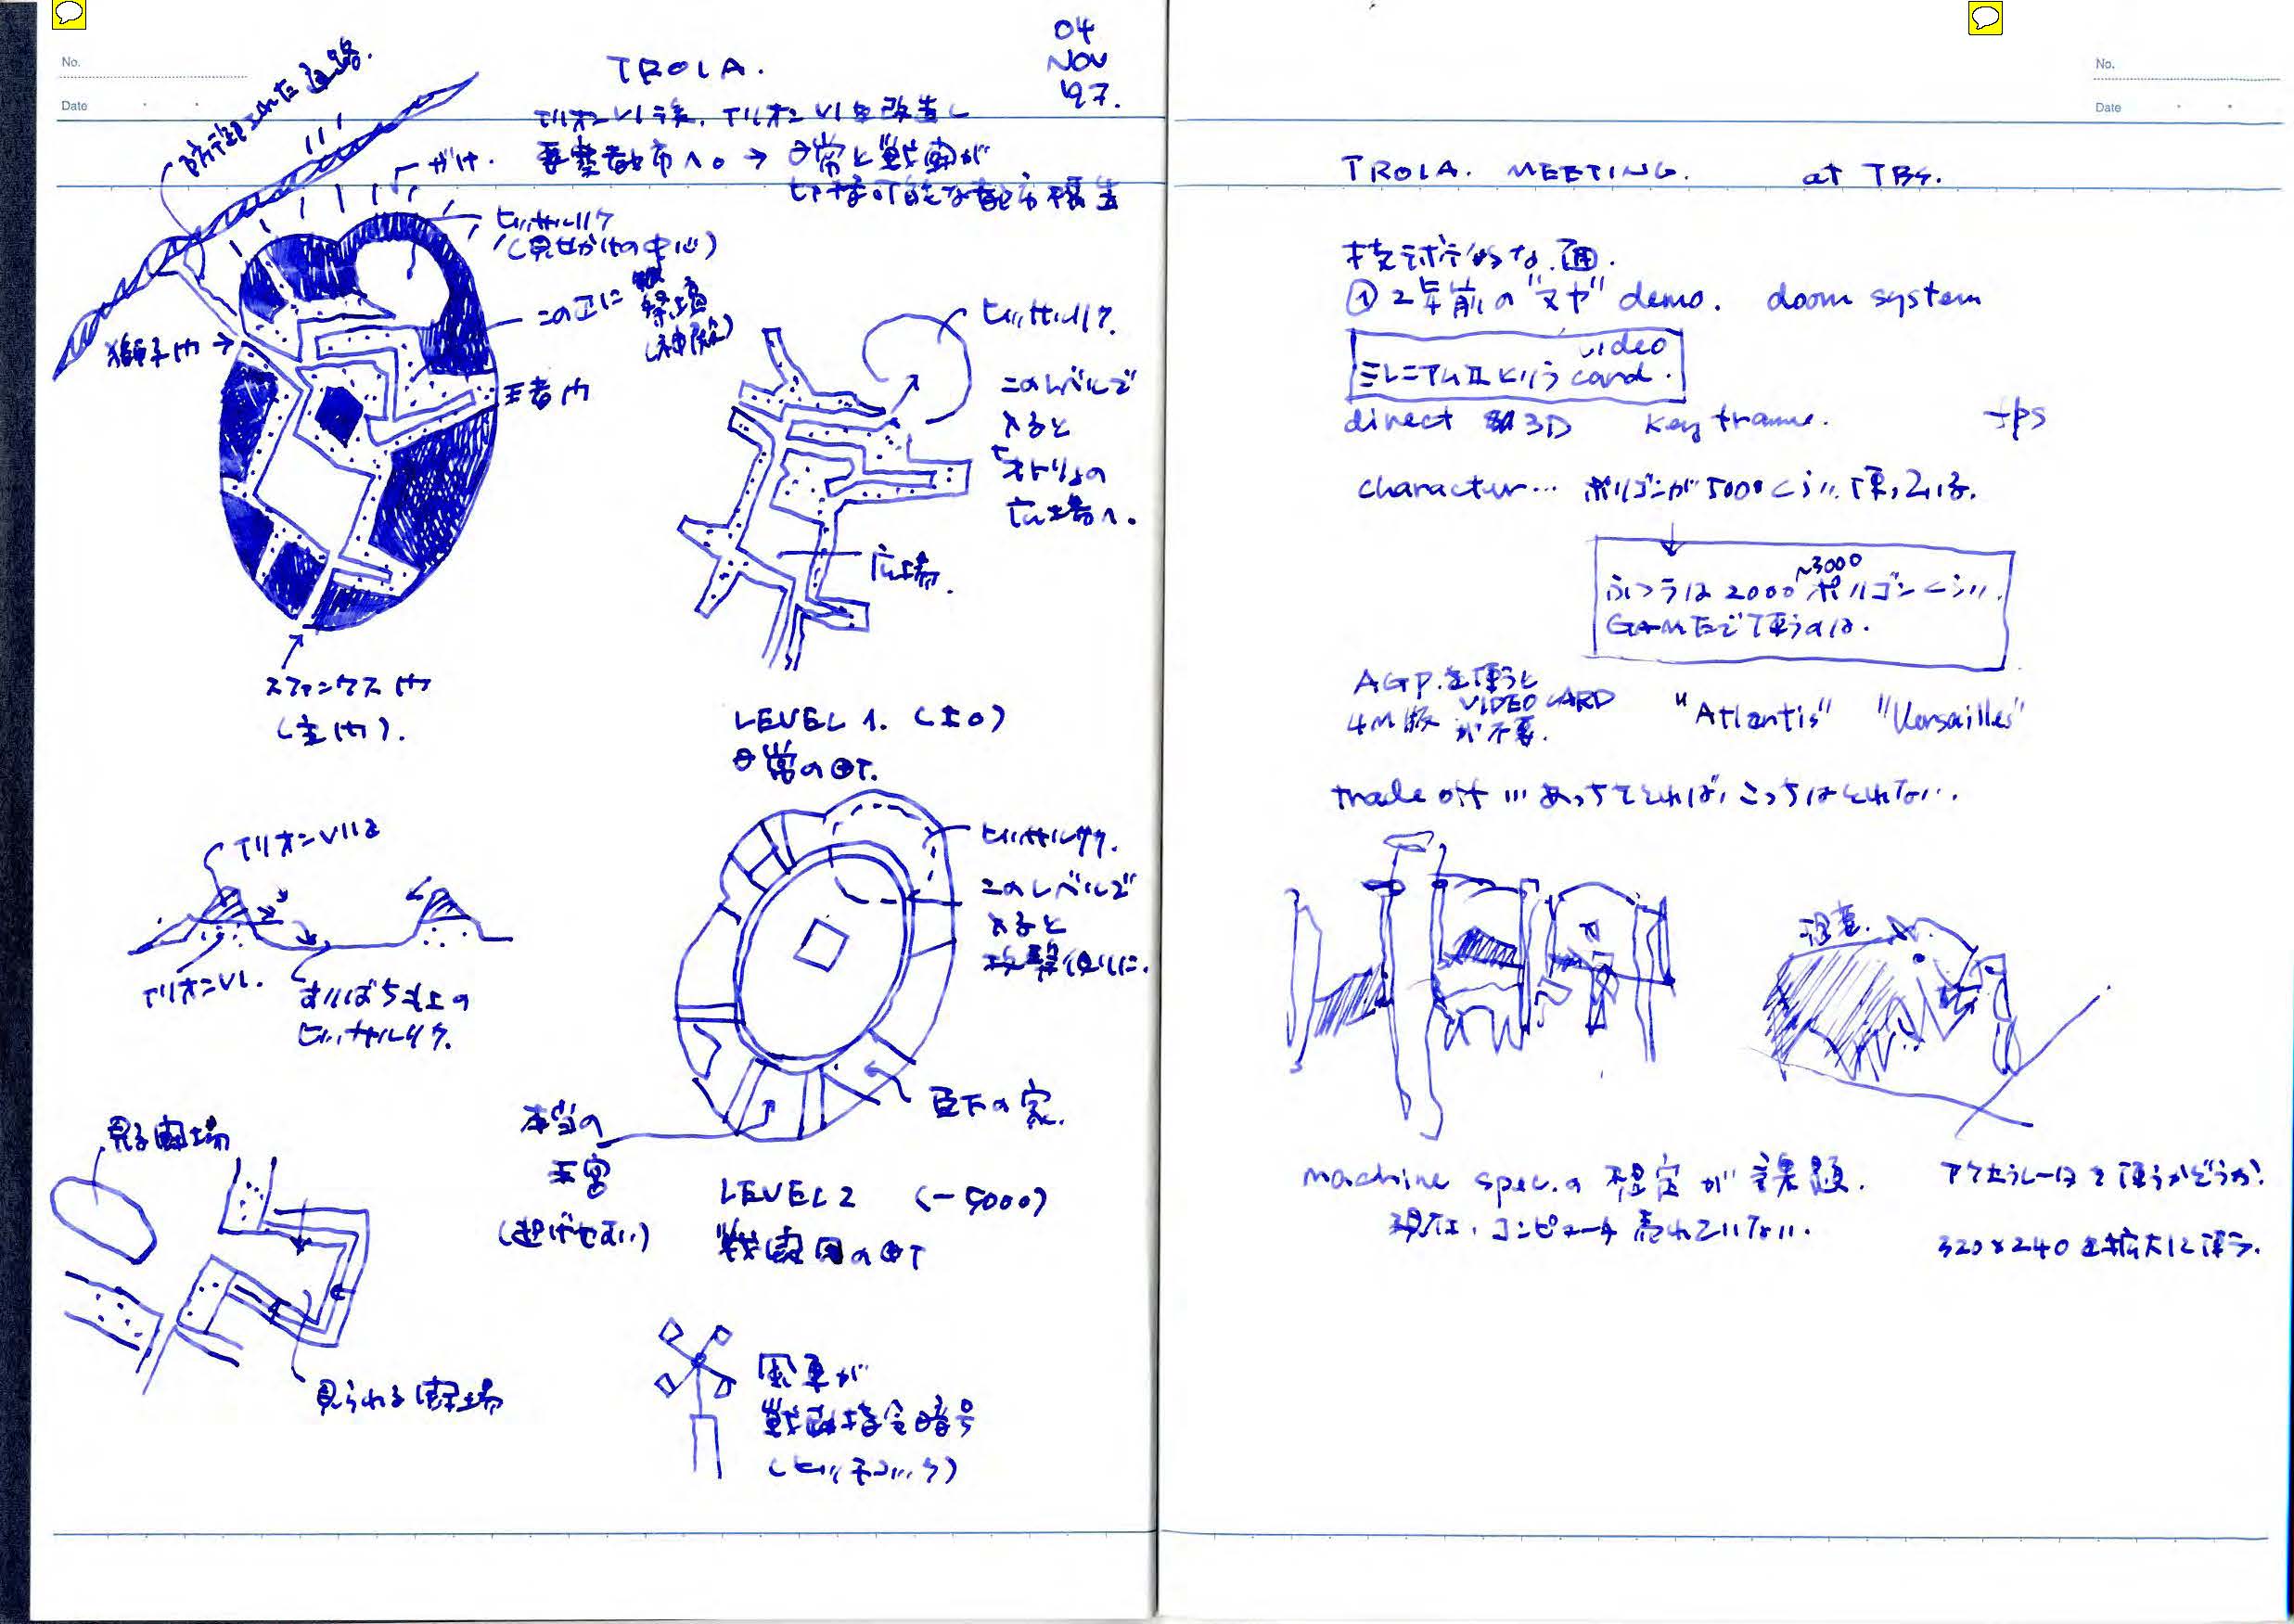 No.
Date
TROIA.
04
NOV
'97.
イリオンVI後、イリオンVIを改造し
要塞都市へ。→ 日常と戦闘が
可能な都市
がけ.
ヒッサリク
(見せかけの中心)
この下に祭壇
(神殿)
獅子門→
王者門
スファンクス門
(主門).
ヒッサリク.
このレベルで
入ると
「オトリ」の
広場へ。
広場.
LEVEL 1. (±0)
日常の町.
イリオンVIIa
イリオンVI.
すりばち状の
ヒッサルリク.
ヒッサルリク.
このレベルで
入ると
攻撃側に.
臣下の家.
本当の
王宮
(逃げやすい)
LEVEL 2 (-5000)
戦闘用の町
見る広場
見られる広場
風車が
戦闘指令暗号
(ヒッチコック)
No.
Date
TROIA. MEETING. at TBS.
技術的な面.
① 2年前の"ヌヤ" demo. doom system
ミレニアムⅡという video card.
direct 3D key frame. fps
character… ポリゴンが5000くらい使っている.
ふつうは2000~3000ポリゴンくらい.
GAMEで使うのは.
AGP.を使うと
4M版 VIDEO CARD
が不要.
"Atlantis" "Versailles"
trade off … あっちをとれば、こっちはとれない.
machine spec.の想定が課題.
現在、コンピュータ売れていない.
アクセラレータを使うかどうか?
320×240を拡大に使う.